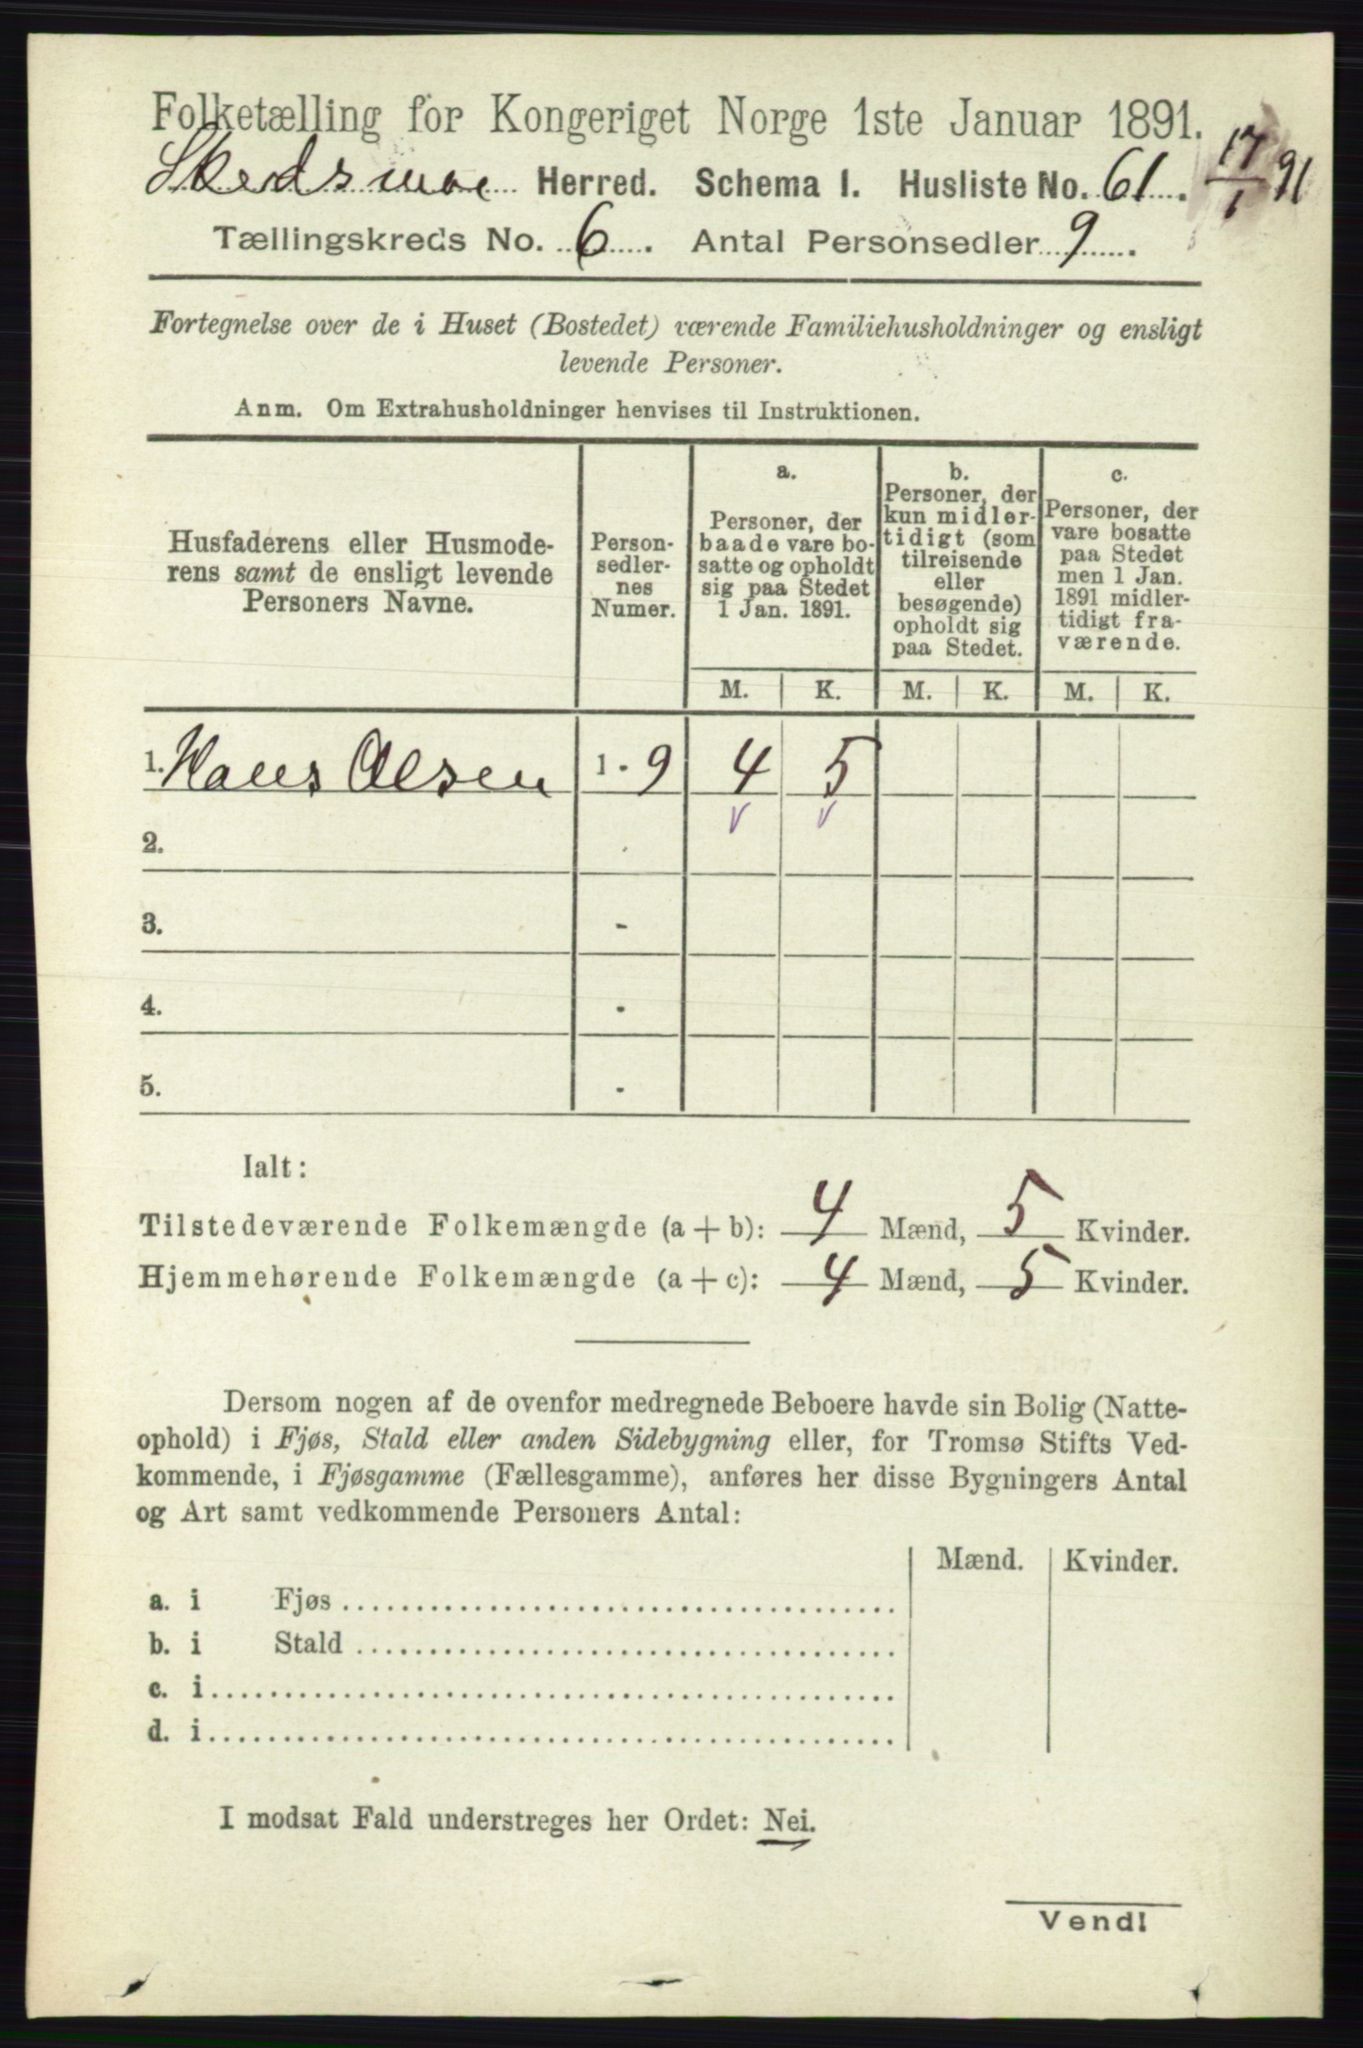 Folketælling for Kongeriget Norge 1ste Januar 1891.
Skedsmoe Herred. Schema I. Husliste No. 61. 17/1 91
Tællingskreds No. 6. Antal Personsedler 9.
Fortegnelse over de i Huset (Bostedet) værende Familiehusholdninger og ensligt
levende Personer.
Anm. Om Extrahusholdninger henvises til Instruktionen.
Husfaderens eller Husmode-
rens samt de ensligt levende
Personers Navne.
Person-
sedler-
nes
Numer.
a.
Personer, der
baade vare bo-
satte og opholdt
sig paa Stedet
1 Jan. 1891.
b.
Personer, der
kun midler-
tidigt (som
tilreisende
eller
besøgende)
opholdt sig
paa Stedet.
c.
Personer, der
vare bosatte
paa Stedet
men 1 Jan.
1891 midler-
tidigt fra-
værende.
M. K. M. K. M. K.
1. Hans Olsen 1 - 9 4 5
2.
3. -
4. -
5. -
Ialt:
Tilstedeværende Folkemængde (a + b): 4 Mænd, 5 Kvinder.
Hjemmehørende Folkemængde (a + c): 4 Mænd, 5 Kvinder.
Dersom nogen af de ovenfor medregnede Beboere havde sin Bolig (Natte-
ophold) i Fjøs, Stald eller anden Sidebygning eller, for Tromsø Stifts Ved-
kommende, i Fjøsgamme (Fællesgamme), anføres her disse Bygningers Antal
og Art samt vedkommende Personers Antal:
Mænd. Kvinder.
a. i Fjøs
b. i Stald
c. i
d. i
I modsat Fald understreges her Ordet: Nei.
Vend!